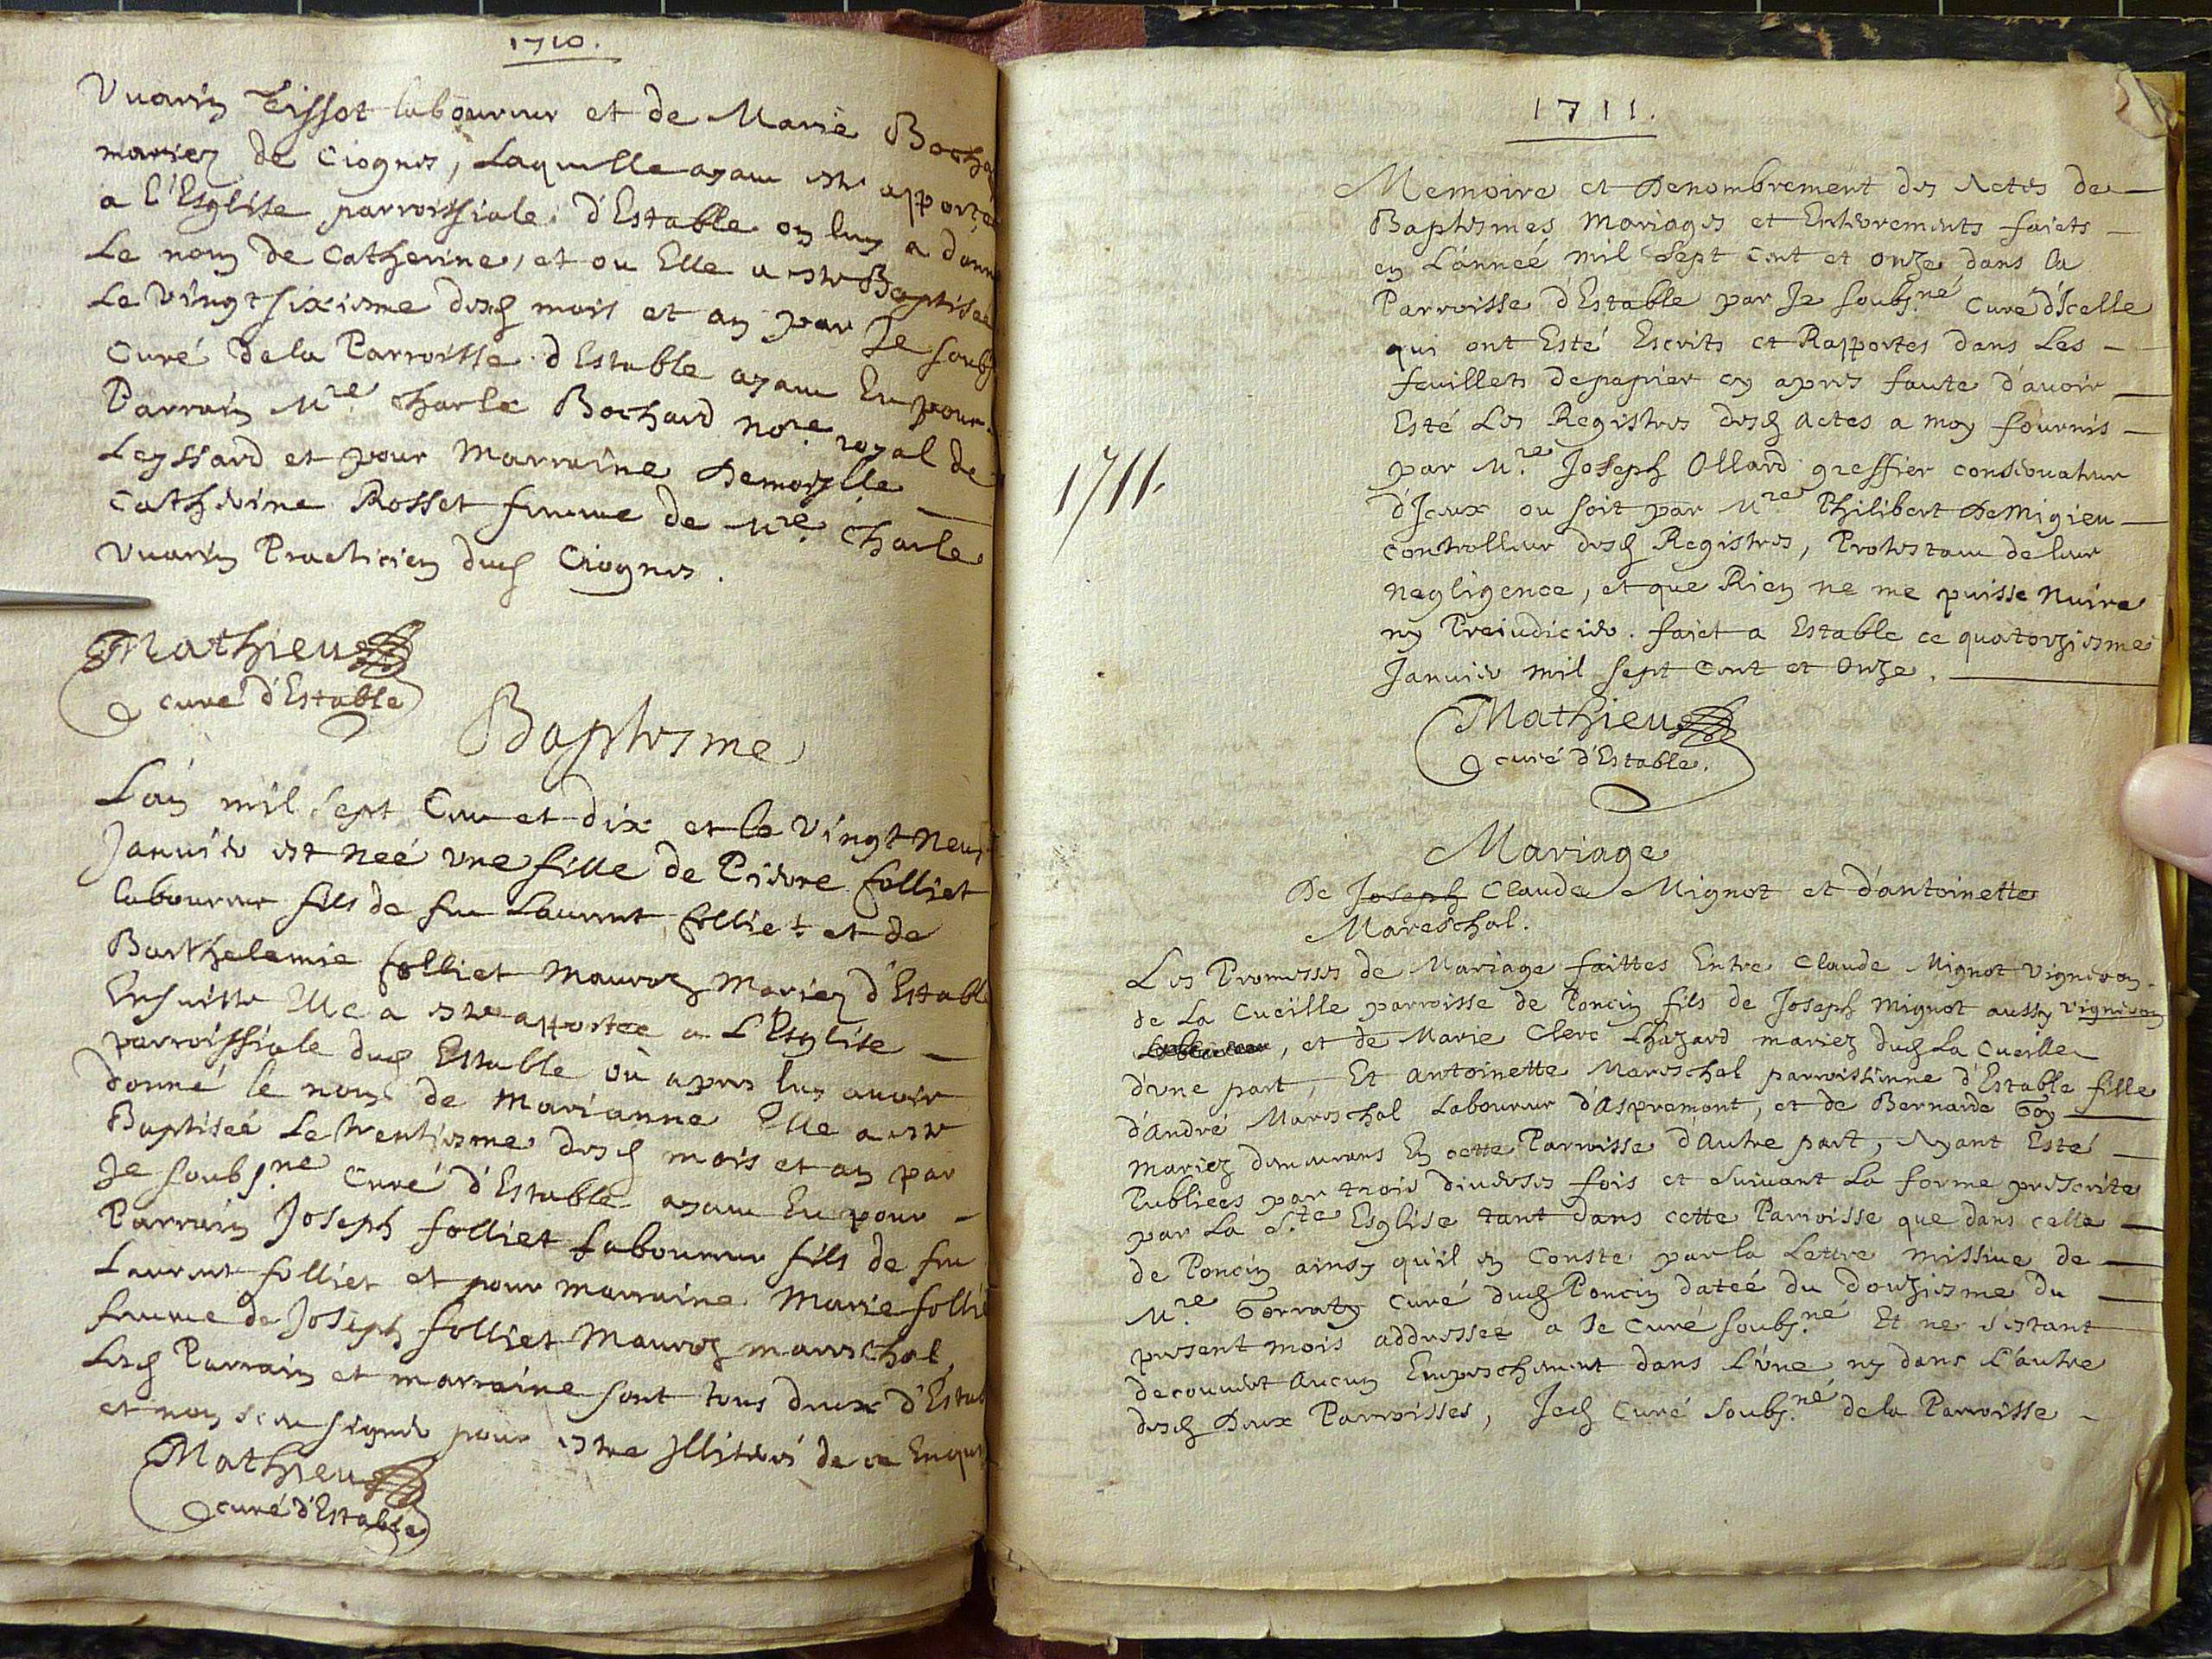 1710.
Vuarin Tissot laboureur et de Marie Bocha
mariez de Ciognes, Laquelle ayant esté apportée
a l'Esglise parroissiale d'Estable on luy a donn
Le nom de Catherine, et ou Elle a esté Baptisée
Le Vingt sixiesme desd mois et an par Je soubs
Curé dela Parroisse d'Estable ayant Eu pour
Parrain Mre Charle Bochard nore royal de
Leyssard et pour Marraine Demoyslle
Catherine Rosset femme de Mre Charle
Vuarin Practicien dud Ciognes.
Mathieu
curé d'Estable
Baptesme
L'an mil sept Cent et dix et le Vingt Neuf
Janvier est Neé Vne fille de Pierre folliet
laboureur fils de feu Laurent folliet et de
Barthelemie folliet Mauroz Mariez d'Estable
Ensuitte Elle a esté apportee a L'Esglise
parroissiale dud Estable où apres luy avoir
donné le nom de Marianne Elle a esté
Baptiseé Le trentiesme desd mois et an par
Je soubs.né Curé d'Estable ayant Eu pour
Parrain Joseph folliet Laboureur fils de feu
Laurent folliet et pour marraine Marie folli
femme de Joseph folliet Mauroz mareschal,
Lesd Parrain et marraine sont tous deux d'Estab
et non sceu signer pour estre Illiterés de ce Enquis
Mathieu
curé d'Estable
1711.
Memoire et Denombrement des Actes de
Baptesmes Mariages et Enterrements faicts
en L'anneé mil Sept Cent et Onze dans la
Parroisse d'Estable par Je soubs.né Curé d'Icelle
qui ont Esté Escrits et Rapportes dans Les
feuillets depapier cy apres faute d'avoir
Esté Les Registres desd Actes a moy fournis
par Mre Joseph Ollard greffier conservateur
d'Iceux ou soit par Mre Philibert DeMigieu
controlleur desd Registres, Protestant de leur
negligence, et que Rien ne me puisse Nuire
ny Preiudicier. faict a Estable ce quatorziesme
Janvier mil sept Cent et Onze.
Mathieu
curé d'Estable.
1711.
Mariage
De Joseph Claude Mignot et d'antoinette
Mareschal.
Les Promesses de Mariage faittes Entre Claude Mignot Vigneron
de La Cueïlle parroisse de Poncin fils de Joseph Mignot aussy Vigneron
, et de Marie Clerc Lhazard mariez dud La Cueille
d'vne part, Et Antoinette Mareschal parroissienne d'Estable fille
d'André Mareschal Laboureur d'Aspremont, et de Bernarde Goy
Mariez demeurans En cette Parroisse d'Autre part, Ayant Esté
Publieés par trois diverses fois et suivant La forme prescrite
par La S.te Esglise tant dans cette Parroisse que dans celle
de Poncin ainsy qu'il en Conste par la Lettre missive de
Mre Gorraty Curé dud Poncin dateé du douziesme du
present mois addressee a Je Curé soubs.né Et ne s'estant
decouvert Aucun Empeschement dans L'vne ny dans L'autre
desd Deux Parroisses, Jed Curé Soubs.né de la Parroisse